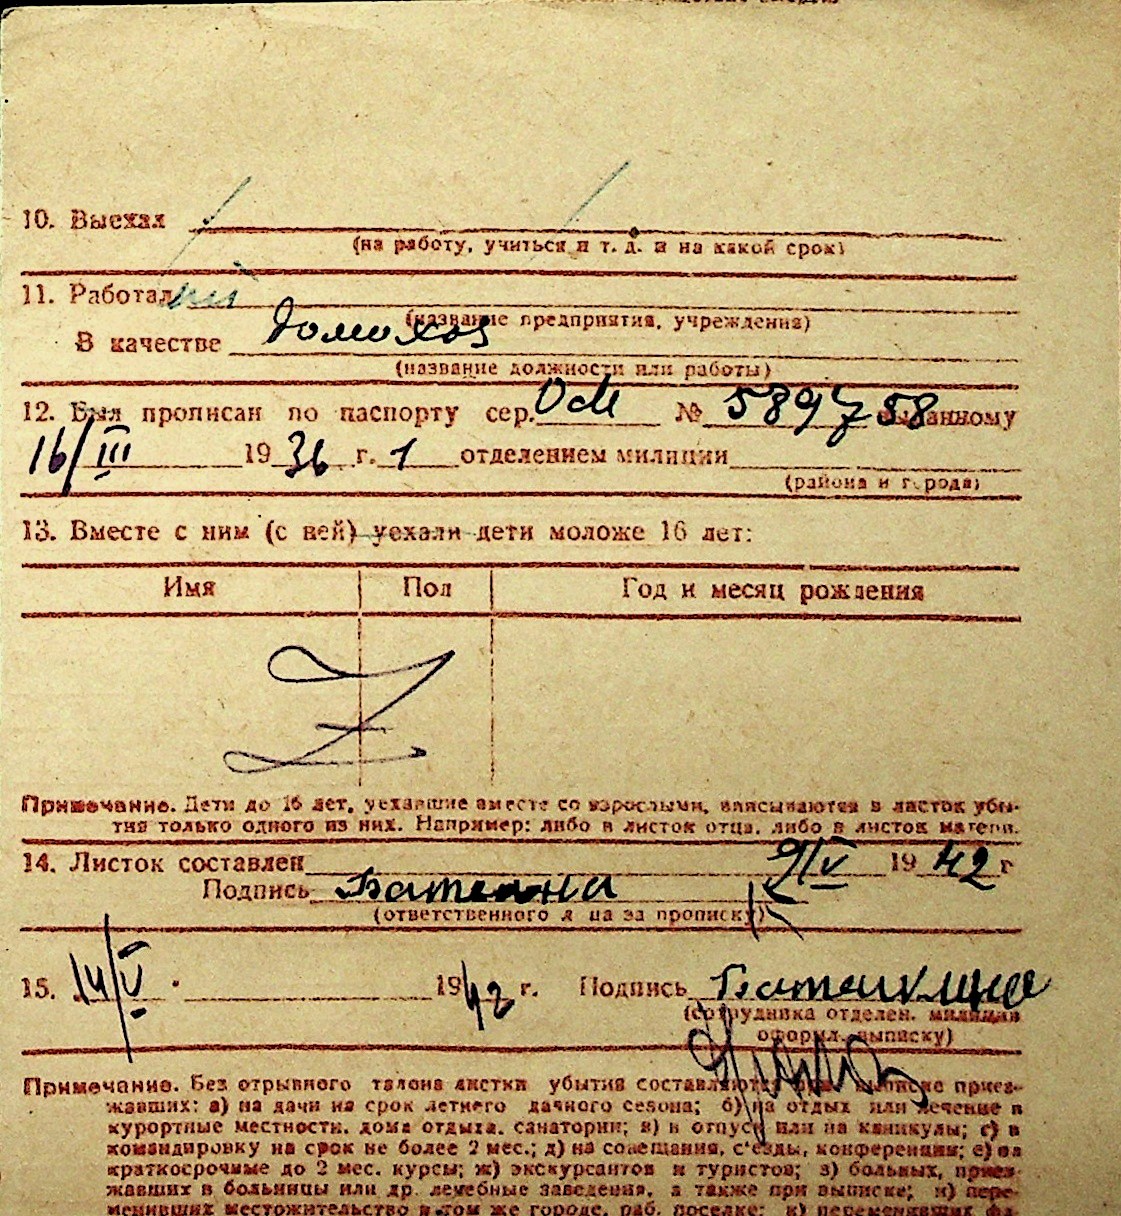 10. Выехал
(на работу, учиться и т. д. и на какой срок)
11. Работал
(название предприятия, учреждения)
В качестве домохоз
(название должности или работы)
12. Был прописан по паспорту сер. № 589758 выданному
16/III 1936 г. 1 отделением милиции
(района и города)
13. Вместе с ним (с ней) уехали дети моложе 16 лет:
Имя Пол Год и месяц рождения
Z
Примечание. Дети до 16 лет, уехавшие вместе со взрослыми, вписываются в листок убы-
тия только одного из них. Например: либо в листок отца, либо в листок матери.
14. Листок составлен 9/V 1942 г
Подпись
(ответственного лица за прописку)
15. 14/V 1942 г. Подпись Баташкина
(сотрудника отделен. милиции
оформ. выписку)
Примечание. Без отрывного талона листки убытия составляются при выписке приез-
жавших: а) на дачи на срок летнего дачного сезона; б) на отдых или лечение в
курортные местности, дома отдыха, санатории; в) в отпуск или на каникулы; г) в
командировку на срок не более 2 мес.; д) на совещания, с'езды, конференции; е) на
краткосрочные до 2 мес. курсы; ж) экскурсантов и туристов; з) больных, приез-
жавших в больницы или др. лечебные заведения, а также при выписке; и) пере-
менивших местожительство в том же городе, раб. поселке; к) переменявших фа-